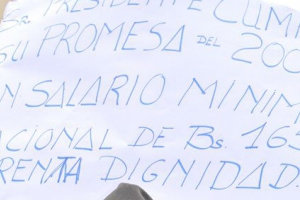 SR. PRESIDENTE CUMP
SU PROMESA DEL 200
UN SALARIO MINIM
NACIONAL DE Bs. 165
RENTA DIGNIDAD.